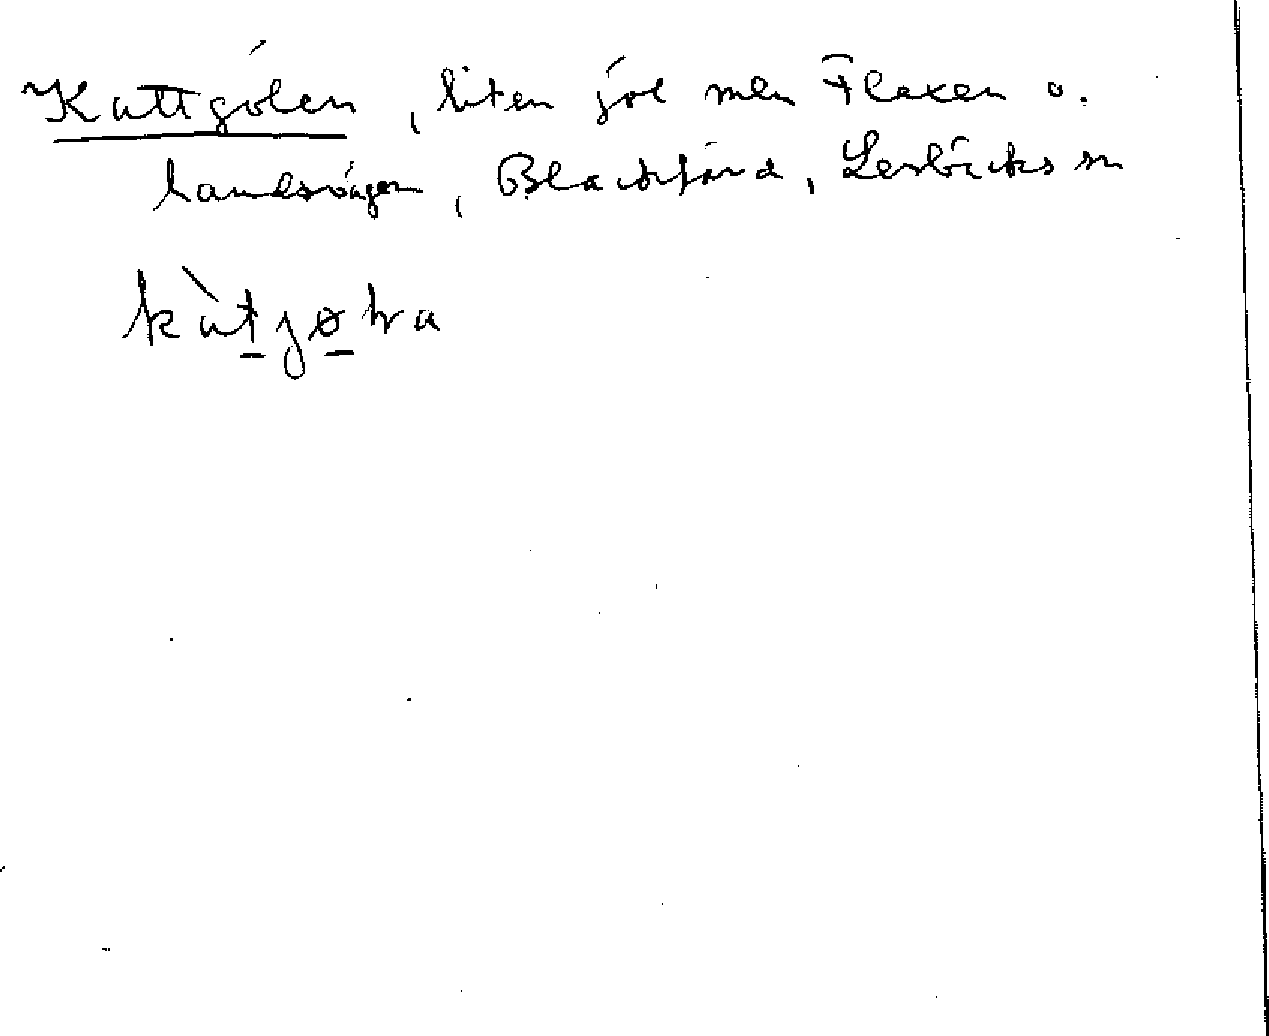 Kattgölen, liten göl mln Flaxen o.
landsvägen, Blacksjärd, Lerbäcks sn
kàtjøƚɐ